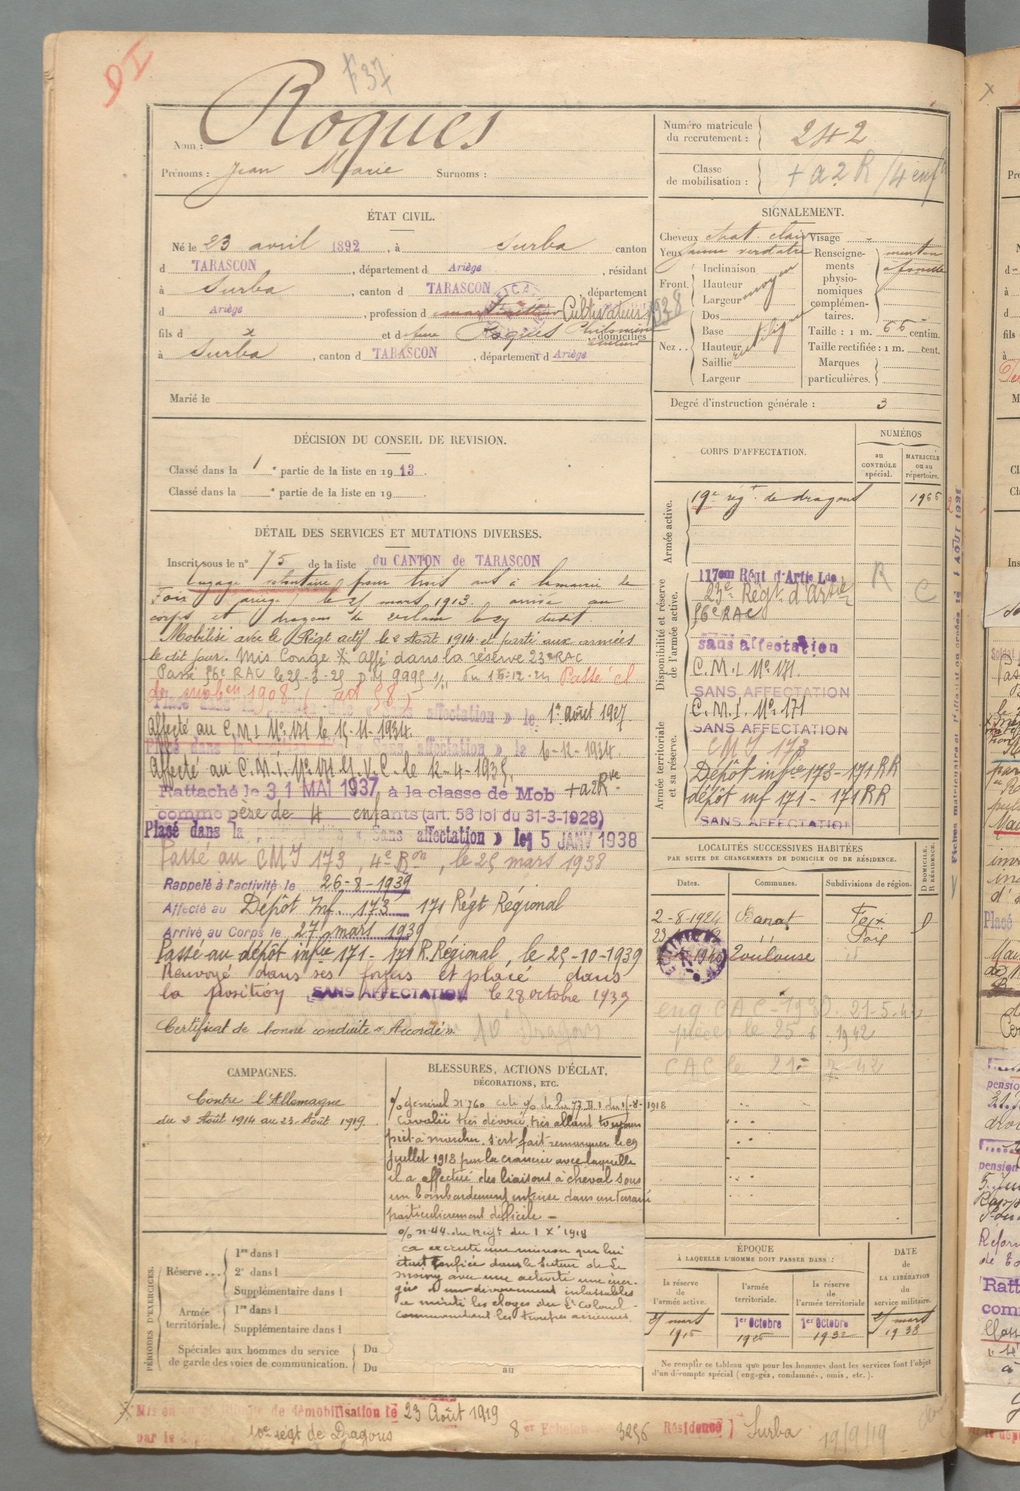 F 37
Nom : Roques
Prénoms : Jean Marie Surnoms :
Numéro matricule du recrutement : 242
Classe de mobilisation : + a 2 R / 4 enf
ÉTAT CIVIL.
Né le 23 avril 1892, à Surba canton
d TARASCON, département d Ariège, résidant
à Surba, canton d TARASCON département
d Ariège, profession d Cultivateur 1938
fils d x et d feue Roques Philomène domiciliés
à Surba, canton d TARASCON, département d Ariège
Marié le
SIGNALEMENT.
Cheveux chat. clair
Yeux jaune verdatre
Front. Inclinaison
Hauteur moyen
Largeur
Nez.. Dos
Base
Hauteur
Saillie
Largeur
Visage
Renseignements physionomiques complémentaires. menton
Taille : 1 m. 66 centim.
Taille rectifiée : 1 m. cent.
Marques particulières.
Degré d'instruction générale : 3
DÉCISION DU CONSEIL DE REVISION.
Classé dans la 1e partie de la liste en 1913.
Classé dans la e partie de la liste en 19
DÉTAIL DES SERVICES ET MUTATIONS DIVERSES.
Inscrit sous le n° 75 de la liste du CANTON de TARASCON
Engagé volontaire pour trois ans à la mairie de
Foix le 25 mars 1913. arrivé au
corps et dragons de 2e classe le dudit
Mobilisé avec le Régt actif le 2 Août 1914 et parti aux armées
le dit jour. Mis Congé X Affé dans la réserve 23e RAC
Passé 56e RAC le 25-3-25 du 16-12-24 Passé cl
1908 (art 58)
« Sans affectation » le 1er août 1927.
Affecté au C.M.I. No 171 le 15-11-1934.
« Sans affectation » le 6-12-1934.
Affecté au C.M.I. No 171 le 12-4-1935.
Rattaché le 31 MAI 1937 à la classe de Mob + a 2 R
comme père de 4 enfants (art. 58 loi du 31-3-1928)
Placé dans la « Sans affectation » le 15 JANV 1938
Passé au CMI 173, 4e Ron, le 25 mars 1938
Rappelé à l'activité le 26-8-1939
Affecté au Dépôt Inf. 173 171 Régt Régional
Arrivé au Corps le 27 mars 1939
Passé au dépôt infie 171 - 171 R.Régional, le 25-10-1939
Renvoyé dans ses foyers et placé dans
la position SANS AFFECTATION le 28 octobre 1939
Certificat de bonne conduite « Accordé » 10e Dragons
CORPS D'AFFECTATION.
NUMÉROS
au CONTRÔLE spécial.
MATRICULE ou au répertoire.
Armée active.
19e régt de dragons 1966
Disponibilité et réserve de l'armée active.
117em Régt d'Artie Lde R
23e Régt d'Artie C
56e RAC
sans affectation
C.M.I. No 171.
SANS AFFECTATION
Armée territoriale et sa réserve.
C.M.I. No 171
SANS AFFECTATION
CMI 173
Dépôt infie 173-171 RR
dépôt inf 171 - 171 RR
SANS AFFECTATION
LOCALITÉS SUCCESSIVES HABITÉES
PAR SUITE DE CHANGEMENTS DE DOMICILE OU DE RÉSIDENCE.
Dates. Communes. Subdivisions de région. D DOMICILE. R RÉSIDENCE.
2-8-1924 Banat Foix D
Foix
1940 Toulouse
CAC 21-5-42
le 25 1942
CAC le 21 42
CAMPAGNES.
Contre l'Allemagne
du 2 Août 1914 au 23 Août 1919.
BLESSURES, ACTIONS D'ÉCLAT,
DÉCORATIONS, ETC.
O/ général n 760 du 1-8-1918
Cavalier très dévoué, très allant toujours
prêt à marcher. s'est fait remarquer le 29
juillet 1918 par la crânerie avec laquelle
il a effectué des liaisons à cheval sous
un bombardement intense dans un terrain
particulièrement difficile -
O/ n 44 du Régt du 1 X 1918
a exécuté une mission qui lui
était confiée dans le secteur de
avec une activité une éner-
gie et un dévouement inlassables
a mérité les éloges du Lt Colonel
commandant les troupes
PÉRIODES D'EXERCICES.
Réserve... 1re dans l
2e dans l
Supplémentaire dans l
Armée territoriale. 1re dans l
Supplémentaire dans l
Spéciales aux hommes du service de garde des voies de communication. Du
Du au
ÉPOQUE
À LAQUELLE L'HOMME DOIT PASSER DANS :
la réserve de l'armée active.
l'armée territoriale.
la réserve de l'armée territoriale
DATE DE LA LIBÉRATION du service militaire.
25 mars 1915
1er Octobre 1926
1er Octobre 1932
25 mars 1938
Ne remplir ce tableau que pour les hommes dont les services font l'objet
d'un décompte spécial (engagés, condamnés, omis, etc.).
Mis en de démobilisation le 23 Août 1919
par le 10e régt de Dragons 8 er Echelon 3256 Résidence Surba 19/9/19